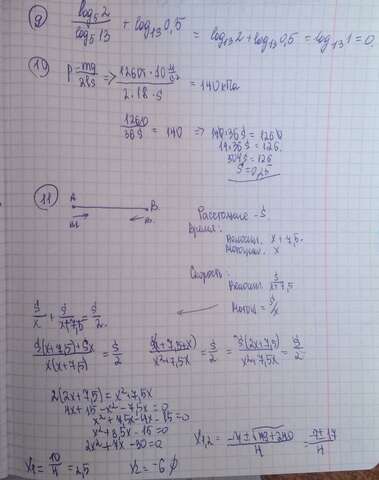 9) log₅2 / log₅13 + log₁₃0,5 = log₁₃2 + log₁₃0,5 = log₁₃1 = 0.
10) P = mg / 2lS => = 140 kПа
12600 / 36S = 140 => 140·36S = 1260
14·36S = 126.
504S = 126
S = 0,25
11) A B.
Расстояние - S
Время:
Велосип. x+7,5.
Мотоцикл. x
Скорость:
Велосип. S/x+7,5
Мотоц = S/x
S/x + S/x+7,5 = S/2.
S(x+7,5)+Sx / x(x+7,5) = S/2 S(x+7,5+x) / x²+7,5x = S/2 = S(2x+7,5) / x²+7,5x = S/2
2(2x+7,5) = x²+7,5x
4x+15-x²-7,5x=0
x²+7,5x-4x-15=0
x²+3,5x-15=0
2x²+7x-30=0
x₁ = 10/4 = 2,5 x₂ = -6 ∅